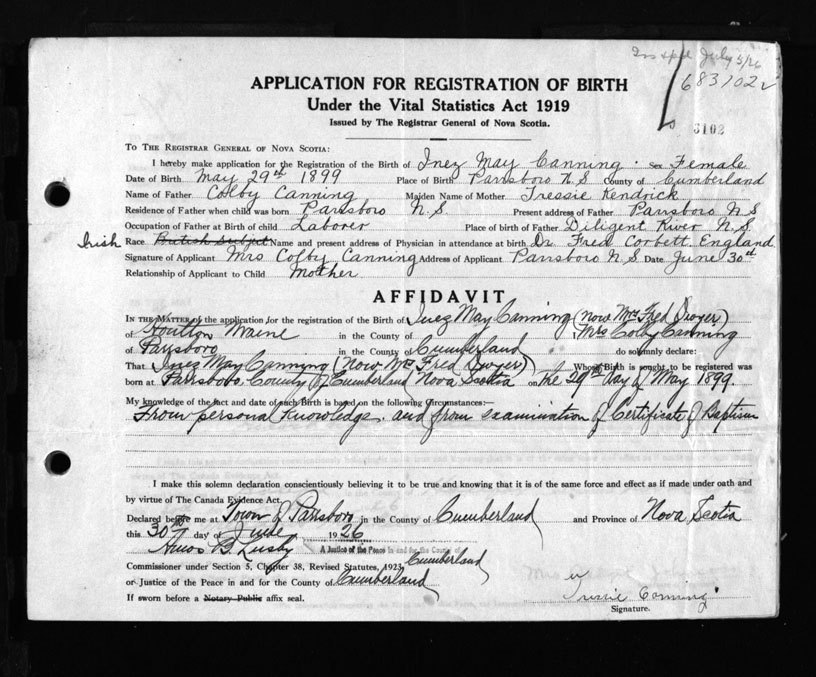 July 5/26
683102
3102
APPLICATION FOR REGISTRATION OF BIRTH
Under the Vital Statistics Act 1919
Issued by The Registrar General of Nova Scotia.
TO THE REGISTRAR GENERAL OF NOVA SCOTIA:
I hereby make application for the Registration of the Birth of Inez May Canning. Sex Female
Date of Birth May 29th 1899 Place of Birth Parrsboro N S County of Cumberland
Name of Father Colby Canning Maiden Name of Mother Tressie Kendrick
Residence of Father when child was born Parrsboro N.S. Present address of Father Parrsboro N S
Occupation of Father at Birth of child Laborer Place of birth of Father Diligent River N.S.
Irish Race British Subject Name and present address of Physician in attendance at birth Dr. Fred Corbett, England
Signature of Applicant Mrs Colby Canning Address of Applicant Parrsboro N.S. Date June 30th
Relationship of Applicant to Child Mother
AFFIDAVIT
IN THE MATTER of the application for the registration of the Birth of Inez May Canning (now Mrs Fred Dwyer)
of Houlton Maine in the County of Mrs Colby Canning
of Parrsboro in the County of Cumberland do solemnly declare:
That Inez May Canning (now Mrs Fred Dwyer) Whose Birth is sought to be registered was
born at Parrsboro County of Cumberland Nova Scotia on the 29th day of May 1899.
My knowledge of the fact and date of such Birth is based on the following Circumstances:—
From personal knowledge and from examination of Certificate of Baptism
I make this solemn declaration conscientiously believing it to be true and knowing that it is of the same force and effect as if made under oath and
by virtue of The Canada Evidence Act.
Declared before me at Town of Parrsboro in the County of Cumberland and Province of Nova Scotia
this 30th day of June 1926
Amos B Lusby A Justice of the Peace in and for the County of
Commissioner under Section 5, Chapter 38, Revised Statutes, 1923, Cumberland
or Justice of the Peace in and for the County of Cumberland
If sworn before a Notary Public affix seal. Tressie Canning
Signature.